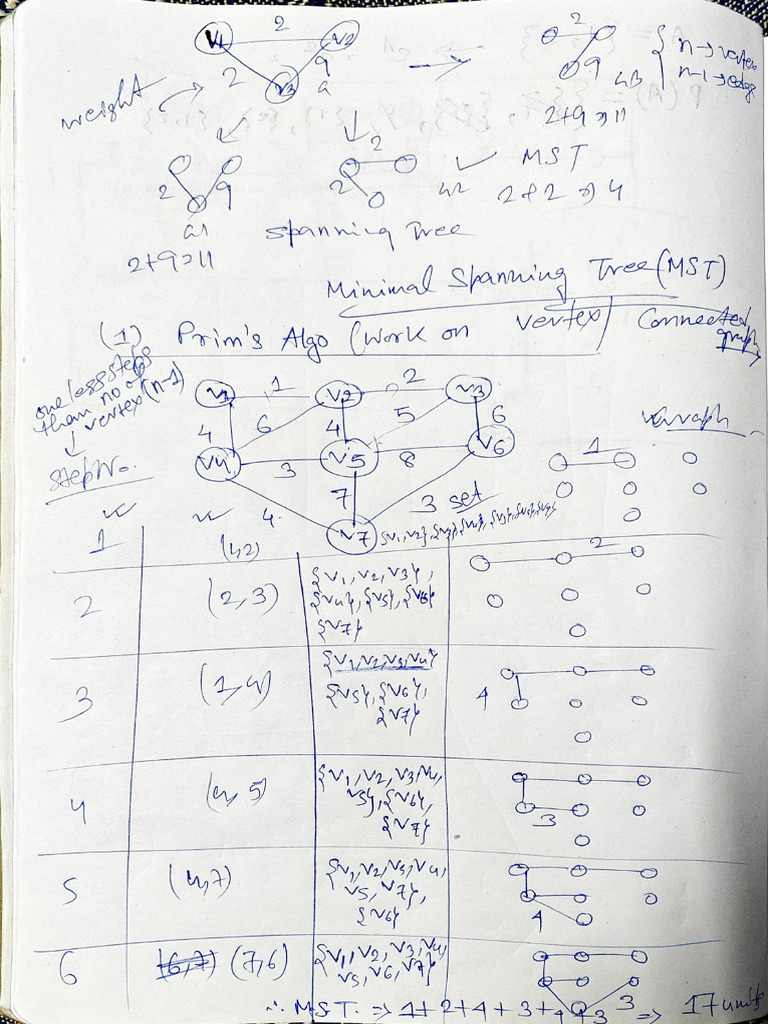 v1 2 v2
2 9
v3
weight
2 9
2+9=11
{ n → vertex
n-1 → edge
2 9
2+9=11
2
2
✓ MST
2+2=4
Spanning Tree
Minimal Spanning Tree (MST)
(1) Prim's Algo (work on vertex) Connected graph
one less steps
than no of
vertex (n-1)
v1 1 v2 2 v3
4 6 4 5 6
v4 3 v5 8 v6
4 7 3
v7
Step No. set Graph
1 (1,2) {v1,v2},{v3},{v4},{v5},{v6},{v7} 1
2 (2,3) {v1,v2,v3}, 2
{v4},{v5},{v6}
{v7}
3 (1,4) {v1,v2,v3,v4} 4
{v5},{v6},
{v7}
4 (4,5) {v1,v2,v3,v4, 3
v5},{v6},
{v7}
5 (4,7) {v1,v2,v3,v4, 4
v5,v7},
{v6}
6 (7,6) {v1,v2,v3,v4, 3
v5,v6,v7}
∴ MST. => 1+2+4+3+4+3 => 17 units